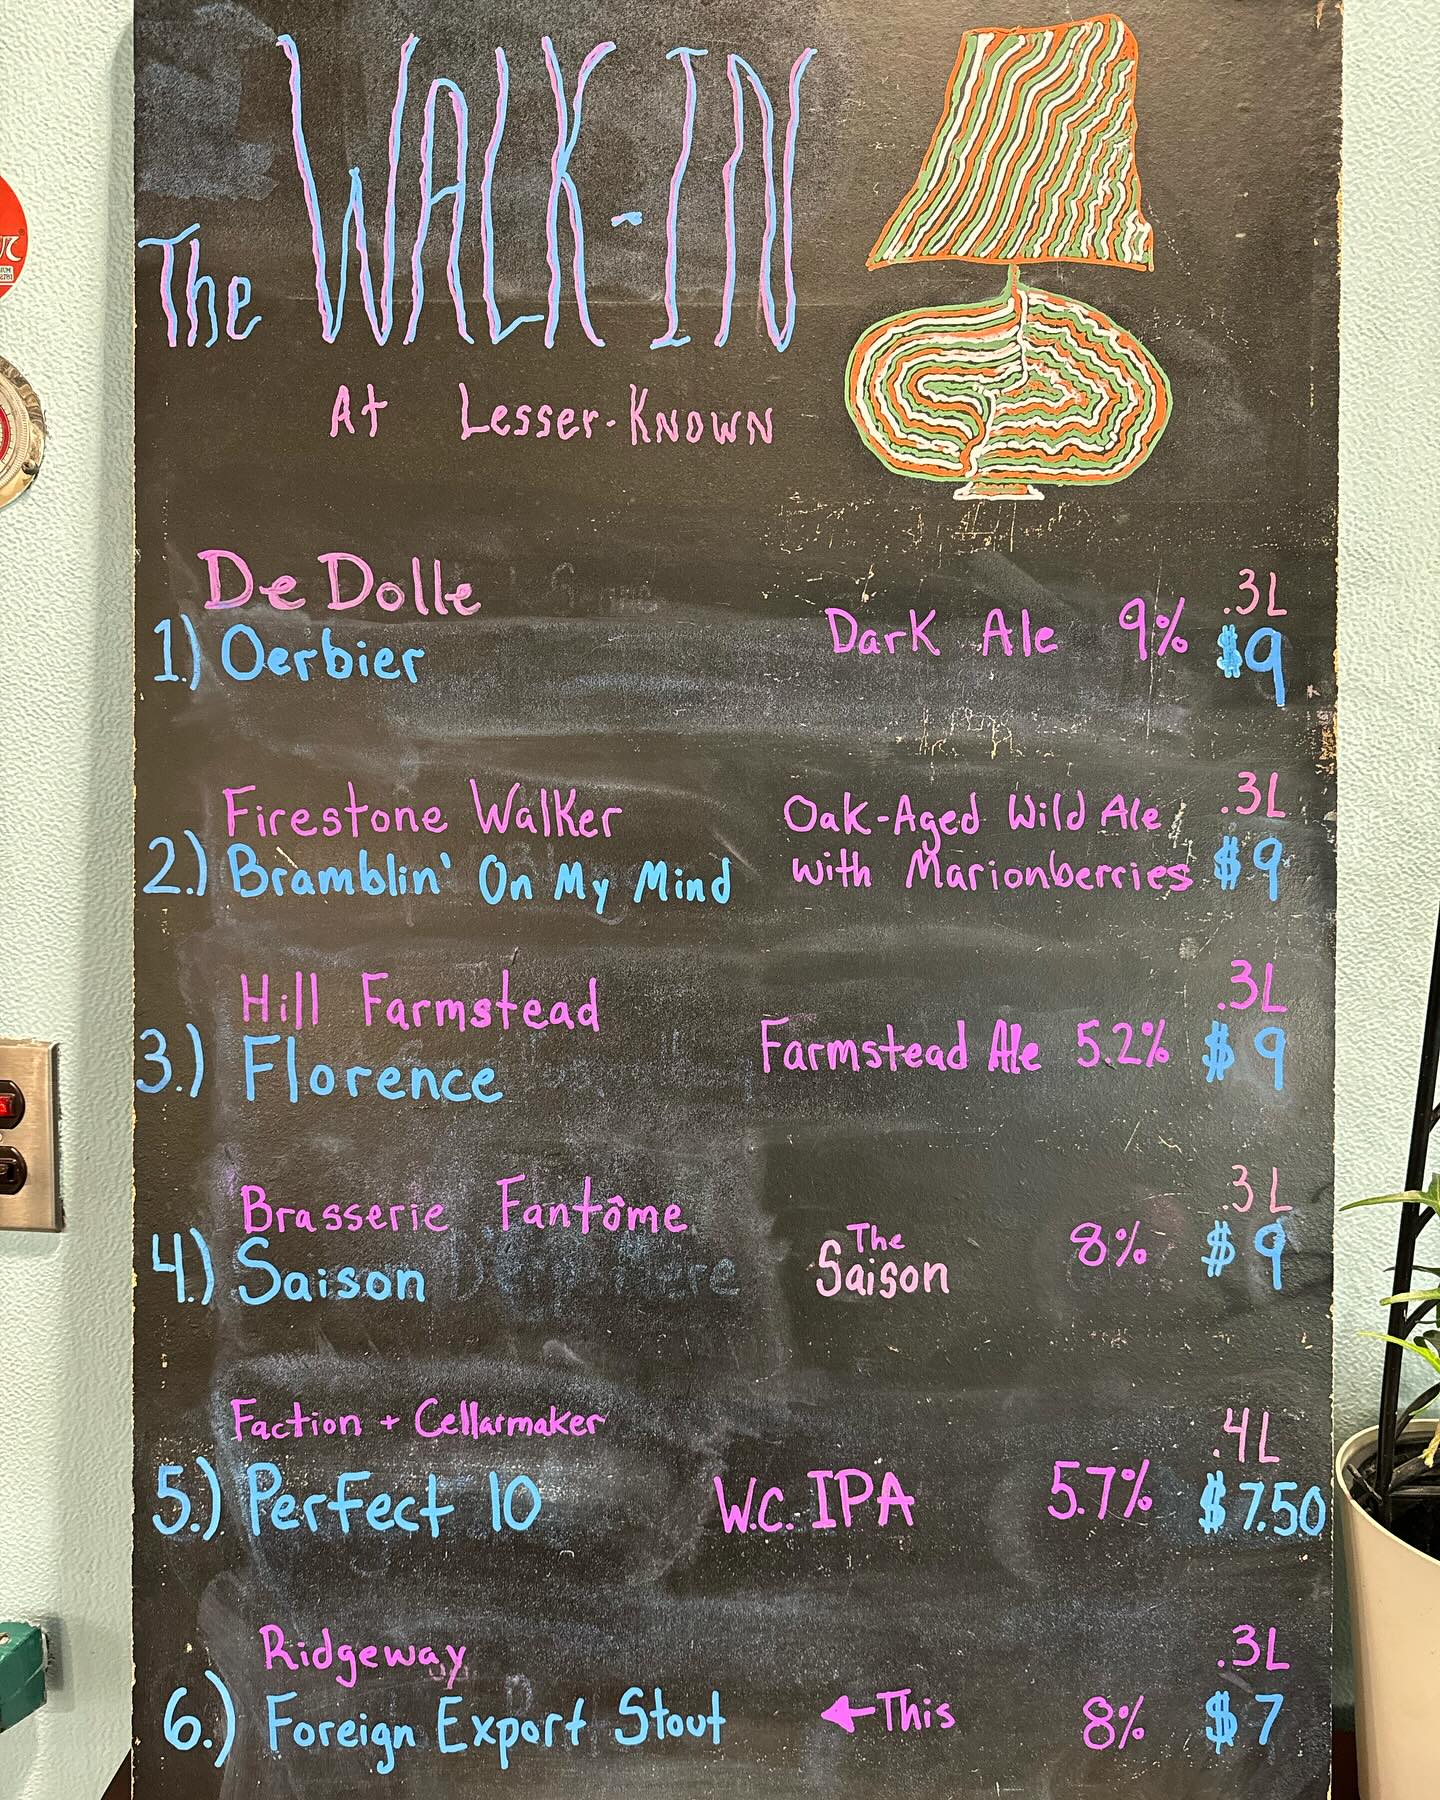 The WALK-IN
At Lesser-KNOWN
De Dolle
1.) Oerbier Dark Ale 9% .3L $9
Firestone Walker
2.) Bramblin' On My Mind Oak-Aged Wild Ale .3L
with Marionberries $9
Hill Farmstead .3L
3.) Florence Farmstead Ale 5.2% $9
Brasserie Fantôme .3L
4.) Saison The Saison 8% $9
Faction + Cellarmaker .4L
5.) Perfect 10 W.C. IPA 5.7% $7.50
Ridgeway .3L
6.) Foreign Export Stout ←This 8% $7